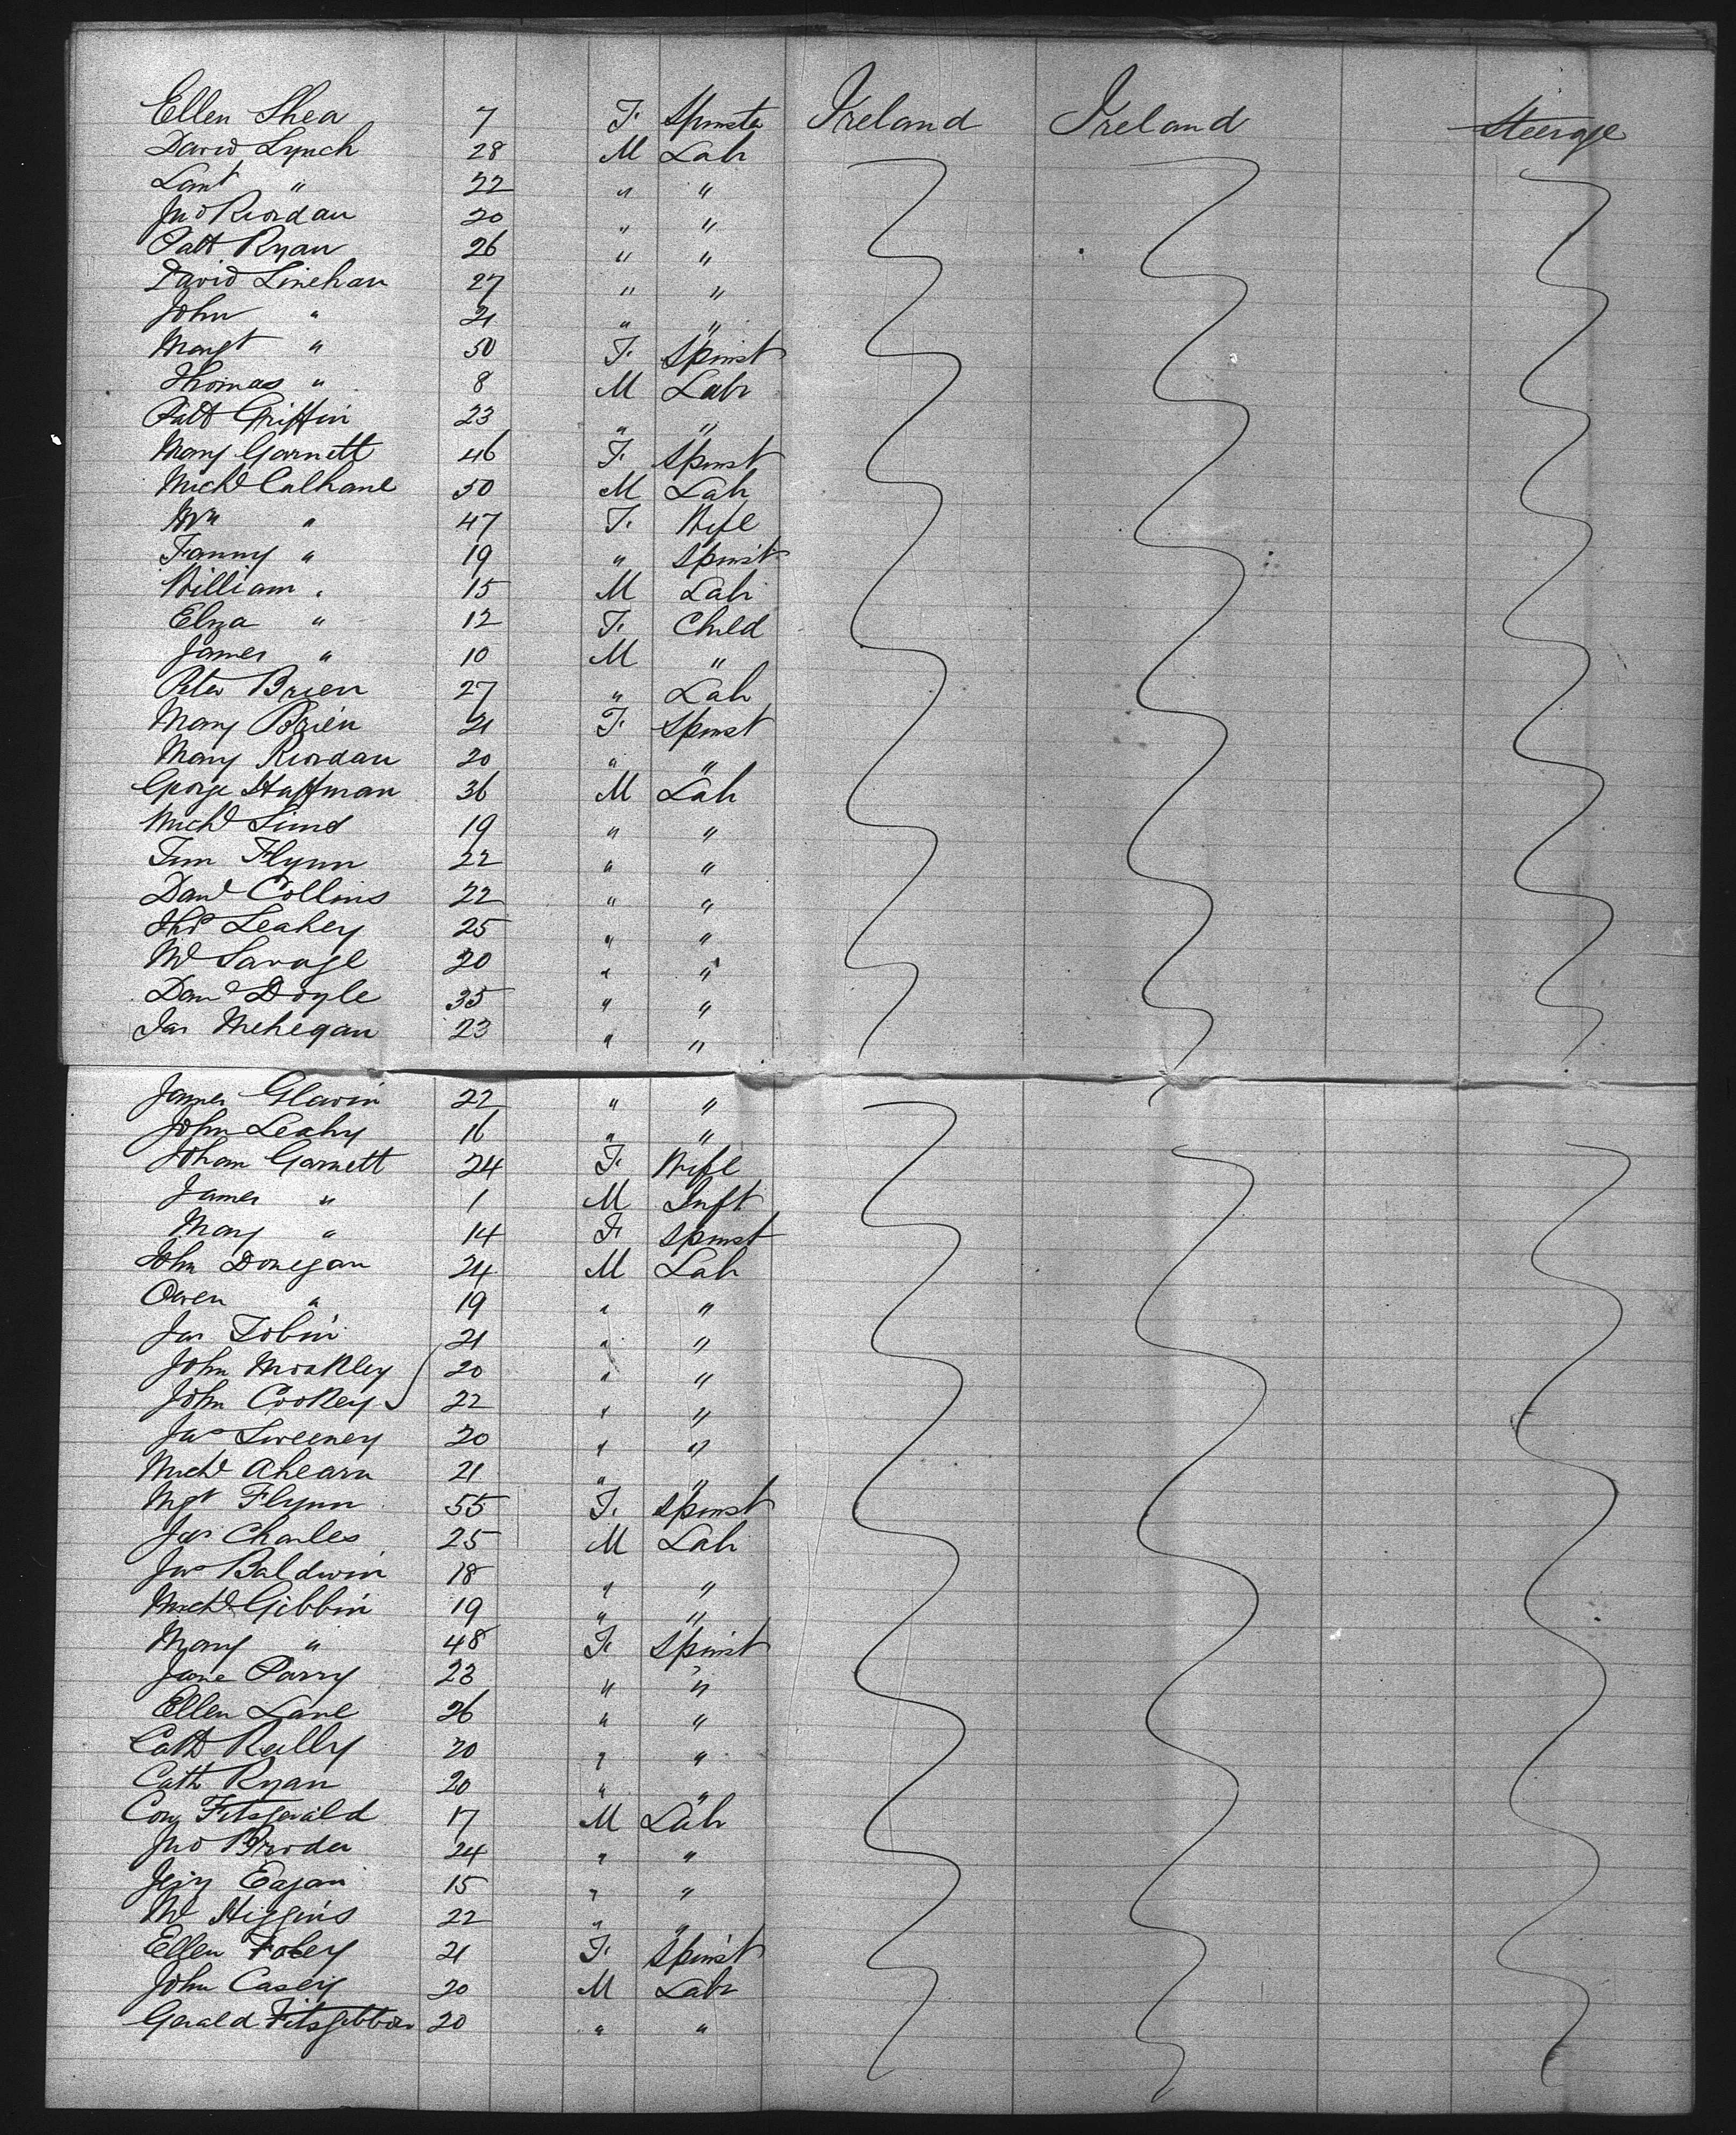 Ellen Shea 7 F. Spinster Ireland Ireland Steerage
David Lynch 28 M Lab
" 22 " "
Jno Riordan 20 " "
Patt Ryan 26 " "
David Linehan 27 " "
John " 21 " "
Margt " 50 F. Spinst
Thomas " 8 M Labr
Patt Griffin 23 " "
Mary Garnett 46 F. Spinst
Michl Calhane 50 M Lab
Mrs " 47 F. Wife
Fanny " 19 " Spinst
William " 15 M Lab
Eliza " 12 F. Child
James " 10 M "
Peter Brien 27 " Lab
Mary Brien 21 F. Spinst
Mary Riordan 20 " "
George Huffman 36 M Lab
Michl 19 " "
Tim Flynn 22 " "
Danl Collins 22 " "
Thos Leahey 25 " "
Ml Savage 20 " "
Danl Doyle 35 " "
Jas Mehegan 23 " "
James Glavin 22 " "
John Leahy 16 " "
Johan Garnett 24 F. Wife
James " 1 M Inft
Mary " 14 F. Spinst
John Donegan 24 M Lab
Owen " 19 " "
Jas Tobin 21 " "
John Moakley 20 " "
John Cookey 22 " "
Jas Sweeney 20 " "
Michl Ahearn 21 " "
Mgt Flynn 55 F. Spinst
Jas Charles 25 M Lab
Jno Baldwin 18 " "
Michl Gibbin 19 " "
Mary " 48 F. Spinst
Jane Parry 23 " "
Ellen Lane 26 " "
Cath Reilly 20 " "
Cath Ryan 20 " "
Con Fitzgerald 17 M Lab
Jno Broder 24 " "
Jerry Eagan 15 " "
Ml Higgins 22 " "
Ellen Foley 21 F. Spinst
John Casey 20 M Labr
Gerald Fitzgibbon 20 " "